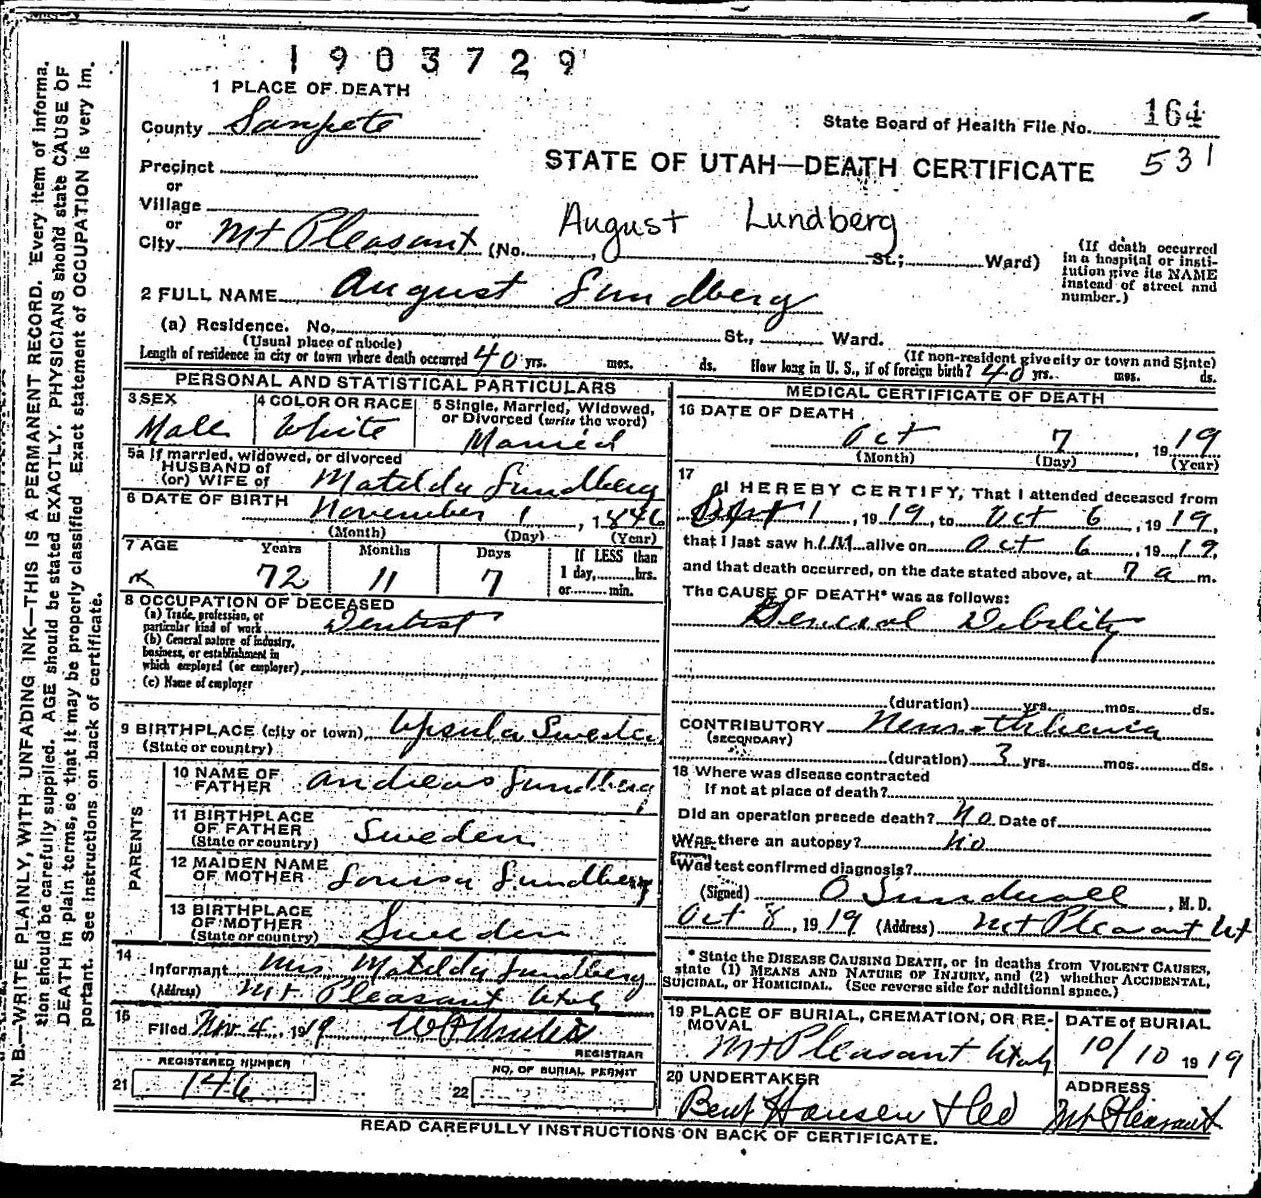 1903729
1 PLACE OF DEATH
County Sanpete
State Board of Health File No. 164
531
STATE OF UTAH—DEATH CERTIFICATE
Precinct
or
Village
or
City Mt Pleasant (No. , St.; Ward)
August Lundberg
(If death occurred in a hospital or insti-
tution give its NAME instead of street and number.)
2 FULL NAME August Lundberg
(a) Residence. No. St., Ward.
(Usual place of abode) (If non-resident give city or town and State)
Length of residence in city or town where death occurred 40 yrs. mos. ds. How long in U. S., if of foreign birth? 40 yrs. mos. ds.
PERSONAL AND STATISTICAL PARTICULARS
3 SEX Male
4 COLOR OR RACE White
5 Single, Married, Widowed, or Divorced (write the word) Married
5a If married, widowed, or divorced
HUSBAND of
(or) WIFE of Matilda Lundberg
6 DATE OF BIRTH November 1, 1846
(Month) (Day) (Year)
7 AGE Years 72 Months 11 Days 7 If LESS than 1 day, hrs. or min.
8 OCCUPATION OF DECEASED
(a) Trade, profession, or particular kind of work Dentist
(b) General nature of industry, business, or establishment in which employed (or employer)
(c) Name of employer
9 BIRTHPLACE (city or town) Upsula Sweden
(State or country)
PARENTS
10 NAME OF FATHER Andreas Lundberg
11 BIRTHPLACE OF FATHER (State or country) Sweden
12 MAIDEN NAME OF MOTHER Louisa Lundberg
13 BIRTHPLACE OF MOTHER (State or country) Sweden
14 Informant Mrs Matilda Lundberg
(Address) Mt Pleasant Utah
15 Filed Nov 4, 1919
REGISTRAR
REGISTERED NUMBER
21 146
NO. OF BURIAL PERMIT
22
MEDICAL CERTIFICATE OF DEATH
16 DATE OF DEATH
Oct 7, 1919
(Month) (Day) (Year)
17 I HEREBY CERTIFY, That I attended deceased from
Sept 1, 1919, to Oct 6, 1919,
that I last saw h im alive on Oct 6, 1919,
and that death occurred, on the date stated above, at 7 a m.
The CAUSE OF DEATH* was as follows:
General Debility
(duration) yrs. mos. ds.
CONTRIBUTORY Neurothhenia
(SECONDARY)
(duration) 3 yrs. mos. ds.
18 Where was disease contracted
If not at place of death?
Did an operation precede death? No Date of
Was there an autopsy? No
Was test confirmed diagnosis?
(Signed) O Sundwall, M. D.
Oct 8, 1919 (Address) Mt Pleasant Ut
* State the DISEASE CAUSING DEATH, or in deaths from VIOLENT CAUSES,
state (1) MEANS AND NATURE OF INJURY, and (2) whether ACCIDENTAL,
SUICIDAL, OR HOMICIDAL. (See reverse side for additional space.)
19 PLACE OF BURIAL, CREMATION, OR RE-
MOVAL
Mt Pleasant Utah
DATE of BURIAL
10/10 1919
20 UNDERTAKER
Bent Hansen & Co
ADDRESS
Mt Pleasant
READ CAREFULLY INSTRUCTIONS ON BACK OF CERTIFICATE.
N. B.—WRITE PLAINLY, WITH UNFADING INK—THIS IS A PERMANENT RECORD. Every item of informa-
tion should be carefully supplied. AGE should be stated EXACTLY. PHYSICIANS should state CAUSE OF
DEATH in plain terms, so that it may be properly classified. Exact statement of OCCUPATION is very im-
portant. See instructions on back of certificate.